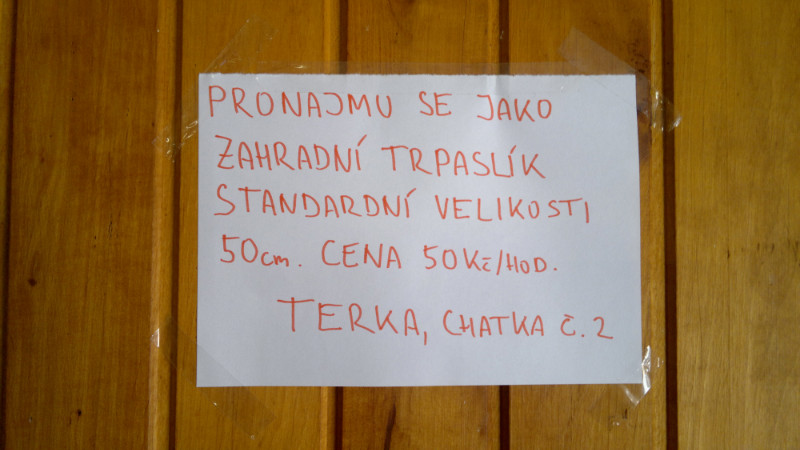 PRONAJMU SE JAKO
ZAHRADNÍ TRPASLÍK
STANDARDNÍ VELIKOSTI
50cm. CENA 50Kč/HOD.
TERKA, CHATKA Č. 2